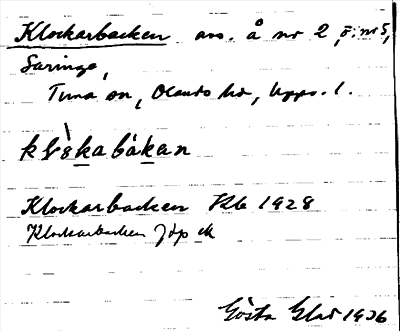 Klockarbacken avs. å nr 2, ö: nr 5,
Saringe,
Tuna sn, Olands hd, Upps. l.
kl kabàkan
Klockarbacken Hb 1928
Klockarbacken Jdp ek
Gösta Glad 1936